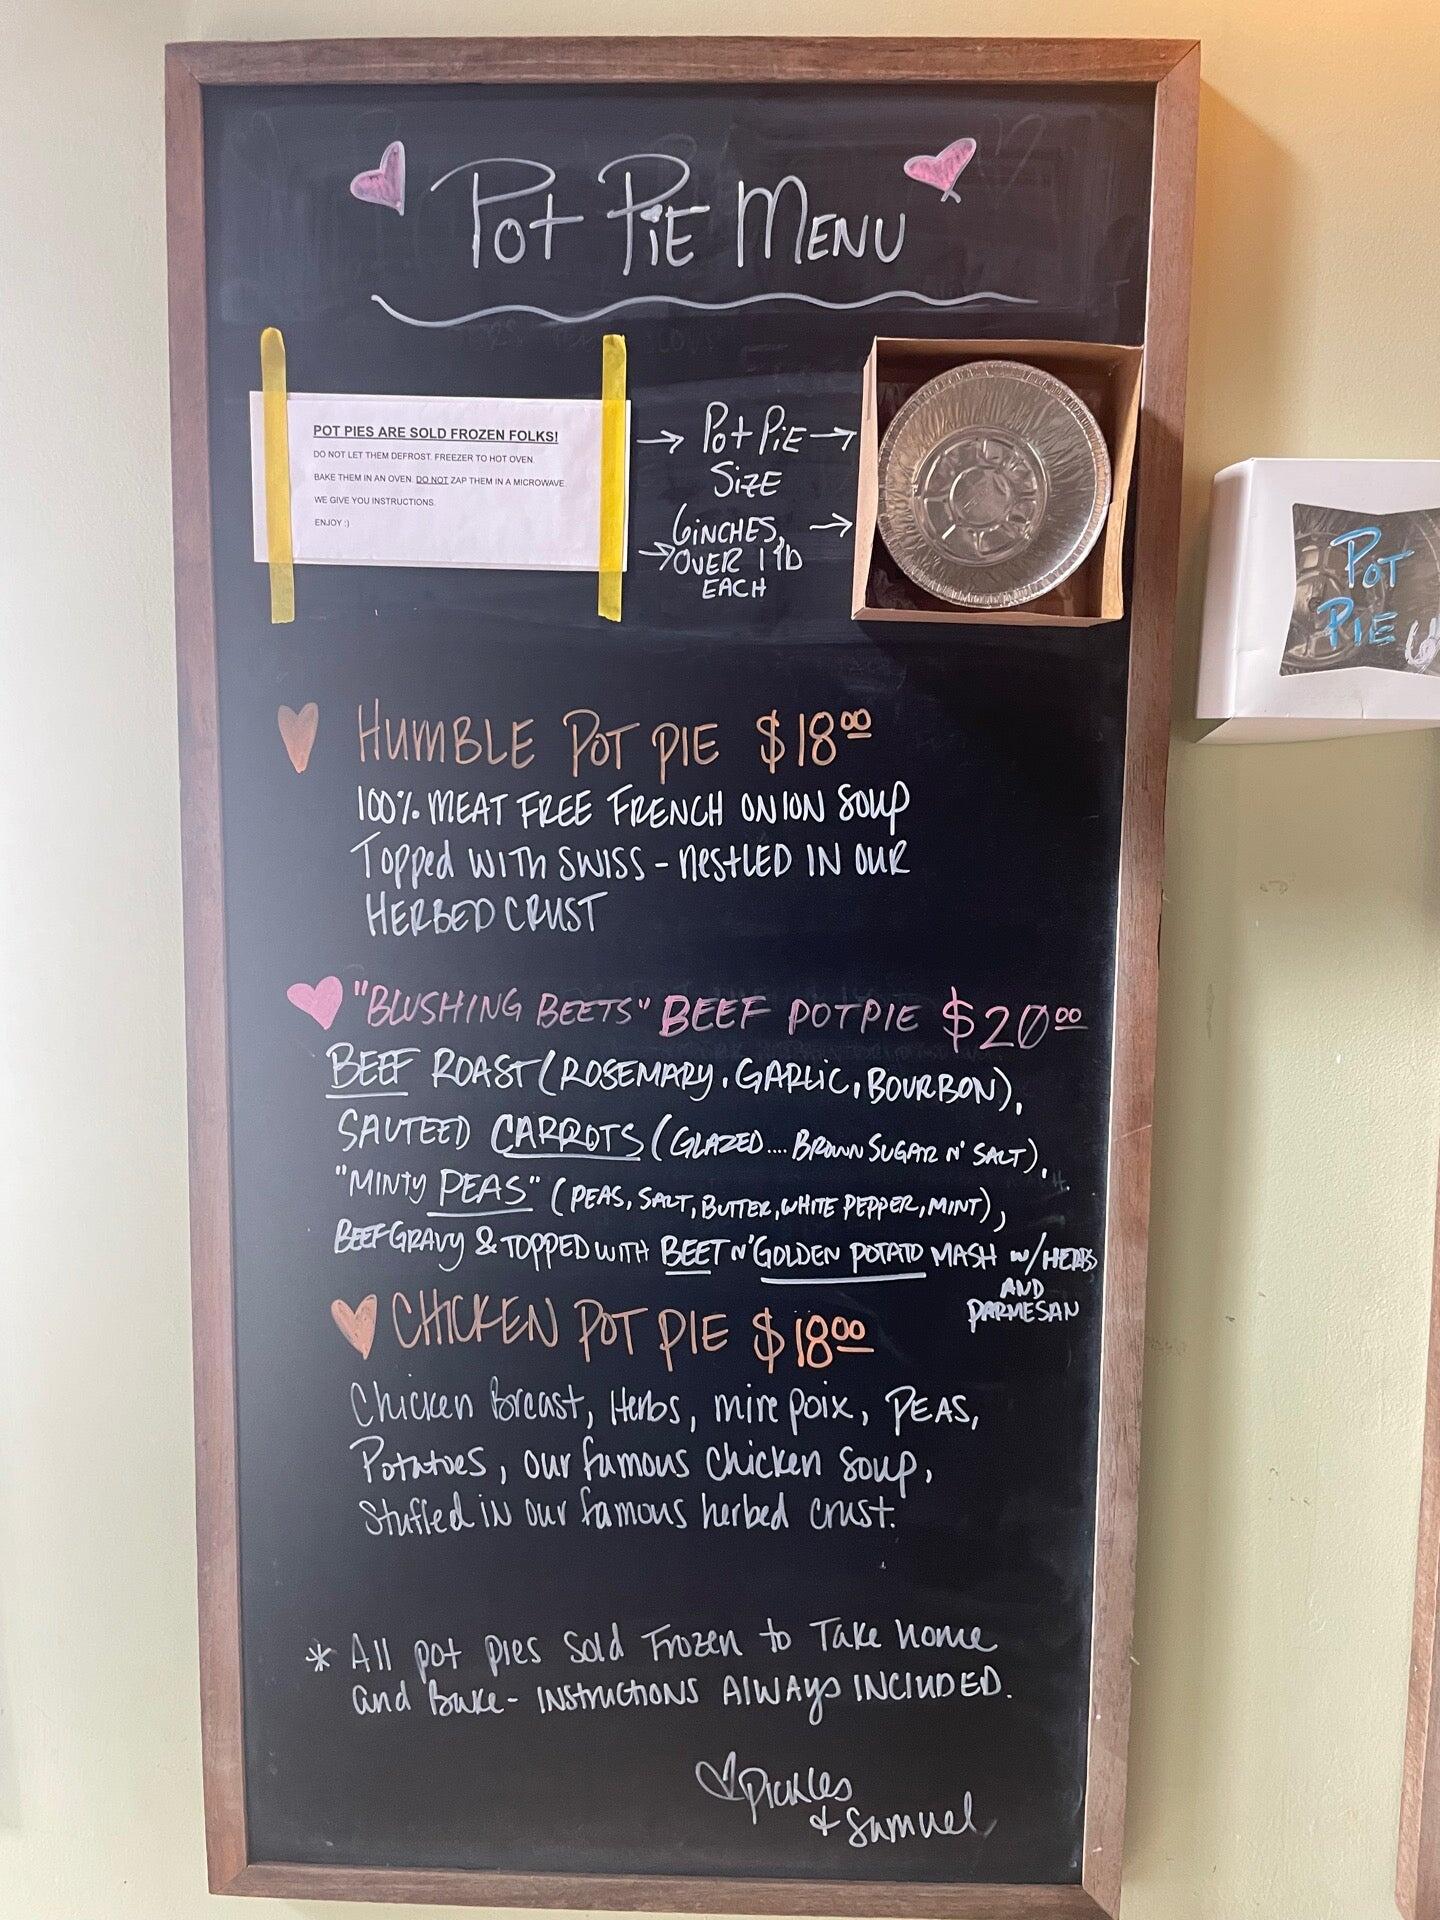 Pot Pie Menu
POT PIES ARE SOLD FROZEN FOLKS!
DO NOT LET THEM DEFROST. FREEZER TO HOT OVEN.
BAKE THEM IN AN OVEN. DO NOT ZAP THEM IN A MICROWAVE.
WE GIVE YOU INSTRUCTIONS.
ENJOY :)
→ Pot Pie →
Size
6 INCHES, →
→ OVER 1 lb
EACH
POT
PIE
HUMBLE POT PIE $18.00
100% MEAT FREE FRENCH ONION SOUP
Topped WITH SWISS - NESTLED IN OUR
HERBED CRUST
"BLUSHING BEETS" BEEF POTPIE $20.00
BEEF ROAST (ROSEMARY, GARLIC, BOURBON),
SAUTEED CARROTS (GLAZED.... BROWN SUGAR N' SALT),
"MINTY PEAS" (PEAS, SALT, BUTTER, WHITE PEPPER, MINT),
BEEF GRAVY & TOPPED WITH BEET N' GOLDEN POTATO MASH w/HERBS
AND
PARMESAN
CHICKEN POT PIE $18.00
Chicken Breast, Herbs, mirepoix, PEAS,
Potatoes, our famous chicken soup,
Stuffed in our famous herbed crust.
* All pot pies Sold Frozen to Take home
and Bake - INSTRUCTIONS ALWAYS INCLUDED.
♡ Pickles
+ Samuel